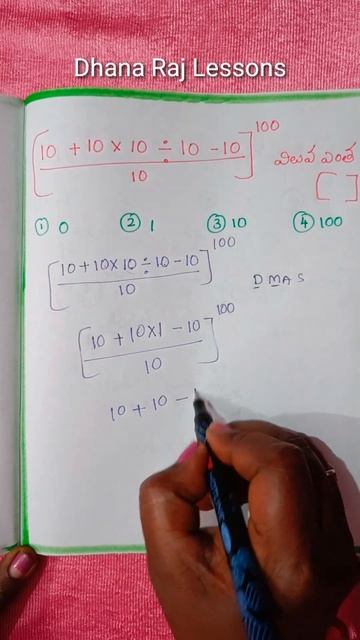 Dhana Raj Lessons
[10 + 10 × 10 ÷ 10 - 10 / 10]^100 విలువ ఎంత [ ]
① 0 ② 1 ③ 10 ④ 100
[10 + 10 × 10 ÷ 10 - 10 / 10]^100
D M A S
[10 + 10 × 1 - 10 / 10]^100
10 + 10 -